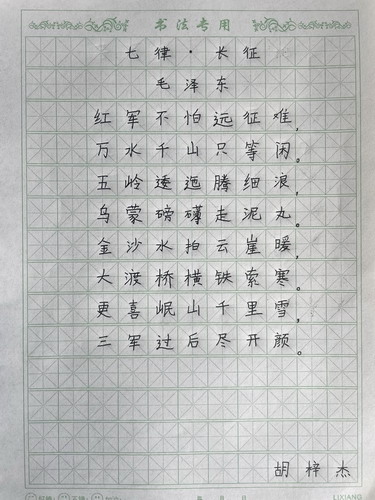 书法专用
七律·长征
毛泽东
红军不怕远征难,
万水千山只等闲。
五岭逶迤腾细浪,
乌蒙磅礴走泥丸。
金沙水拍云崖暖,
大渡桥横铁索寒。
更喜岷山千里雪,
三军过后尽开颜。
胡梓杰
年 月 日 LIXIANG